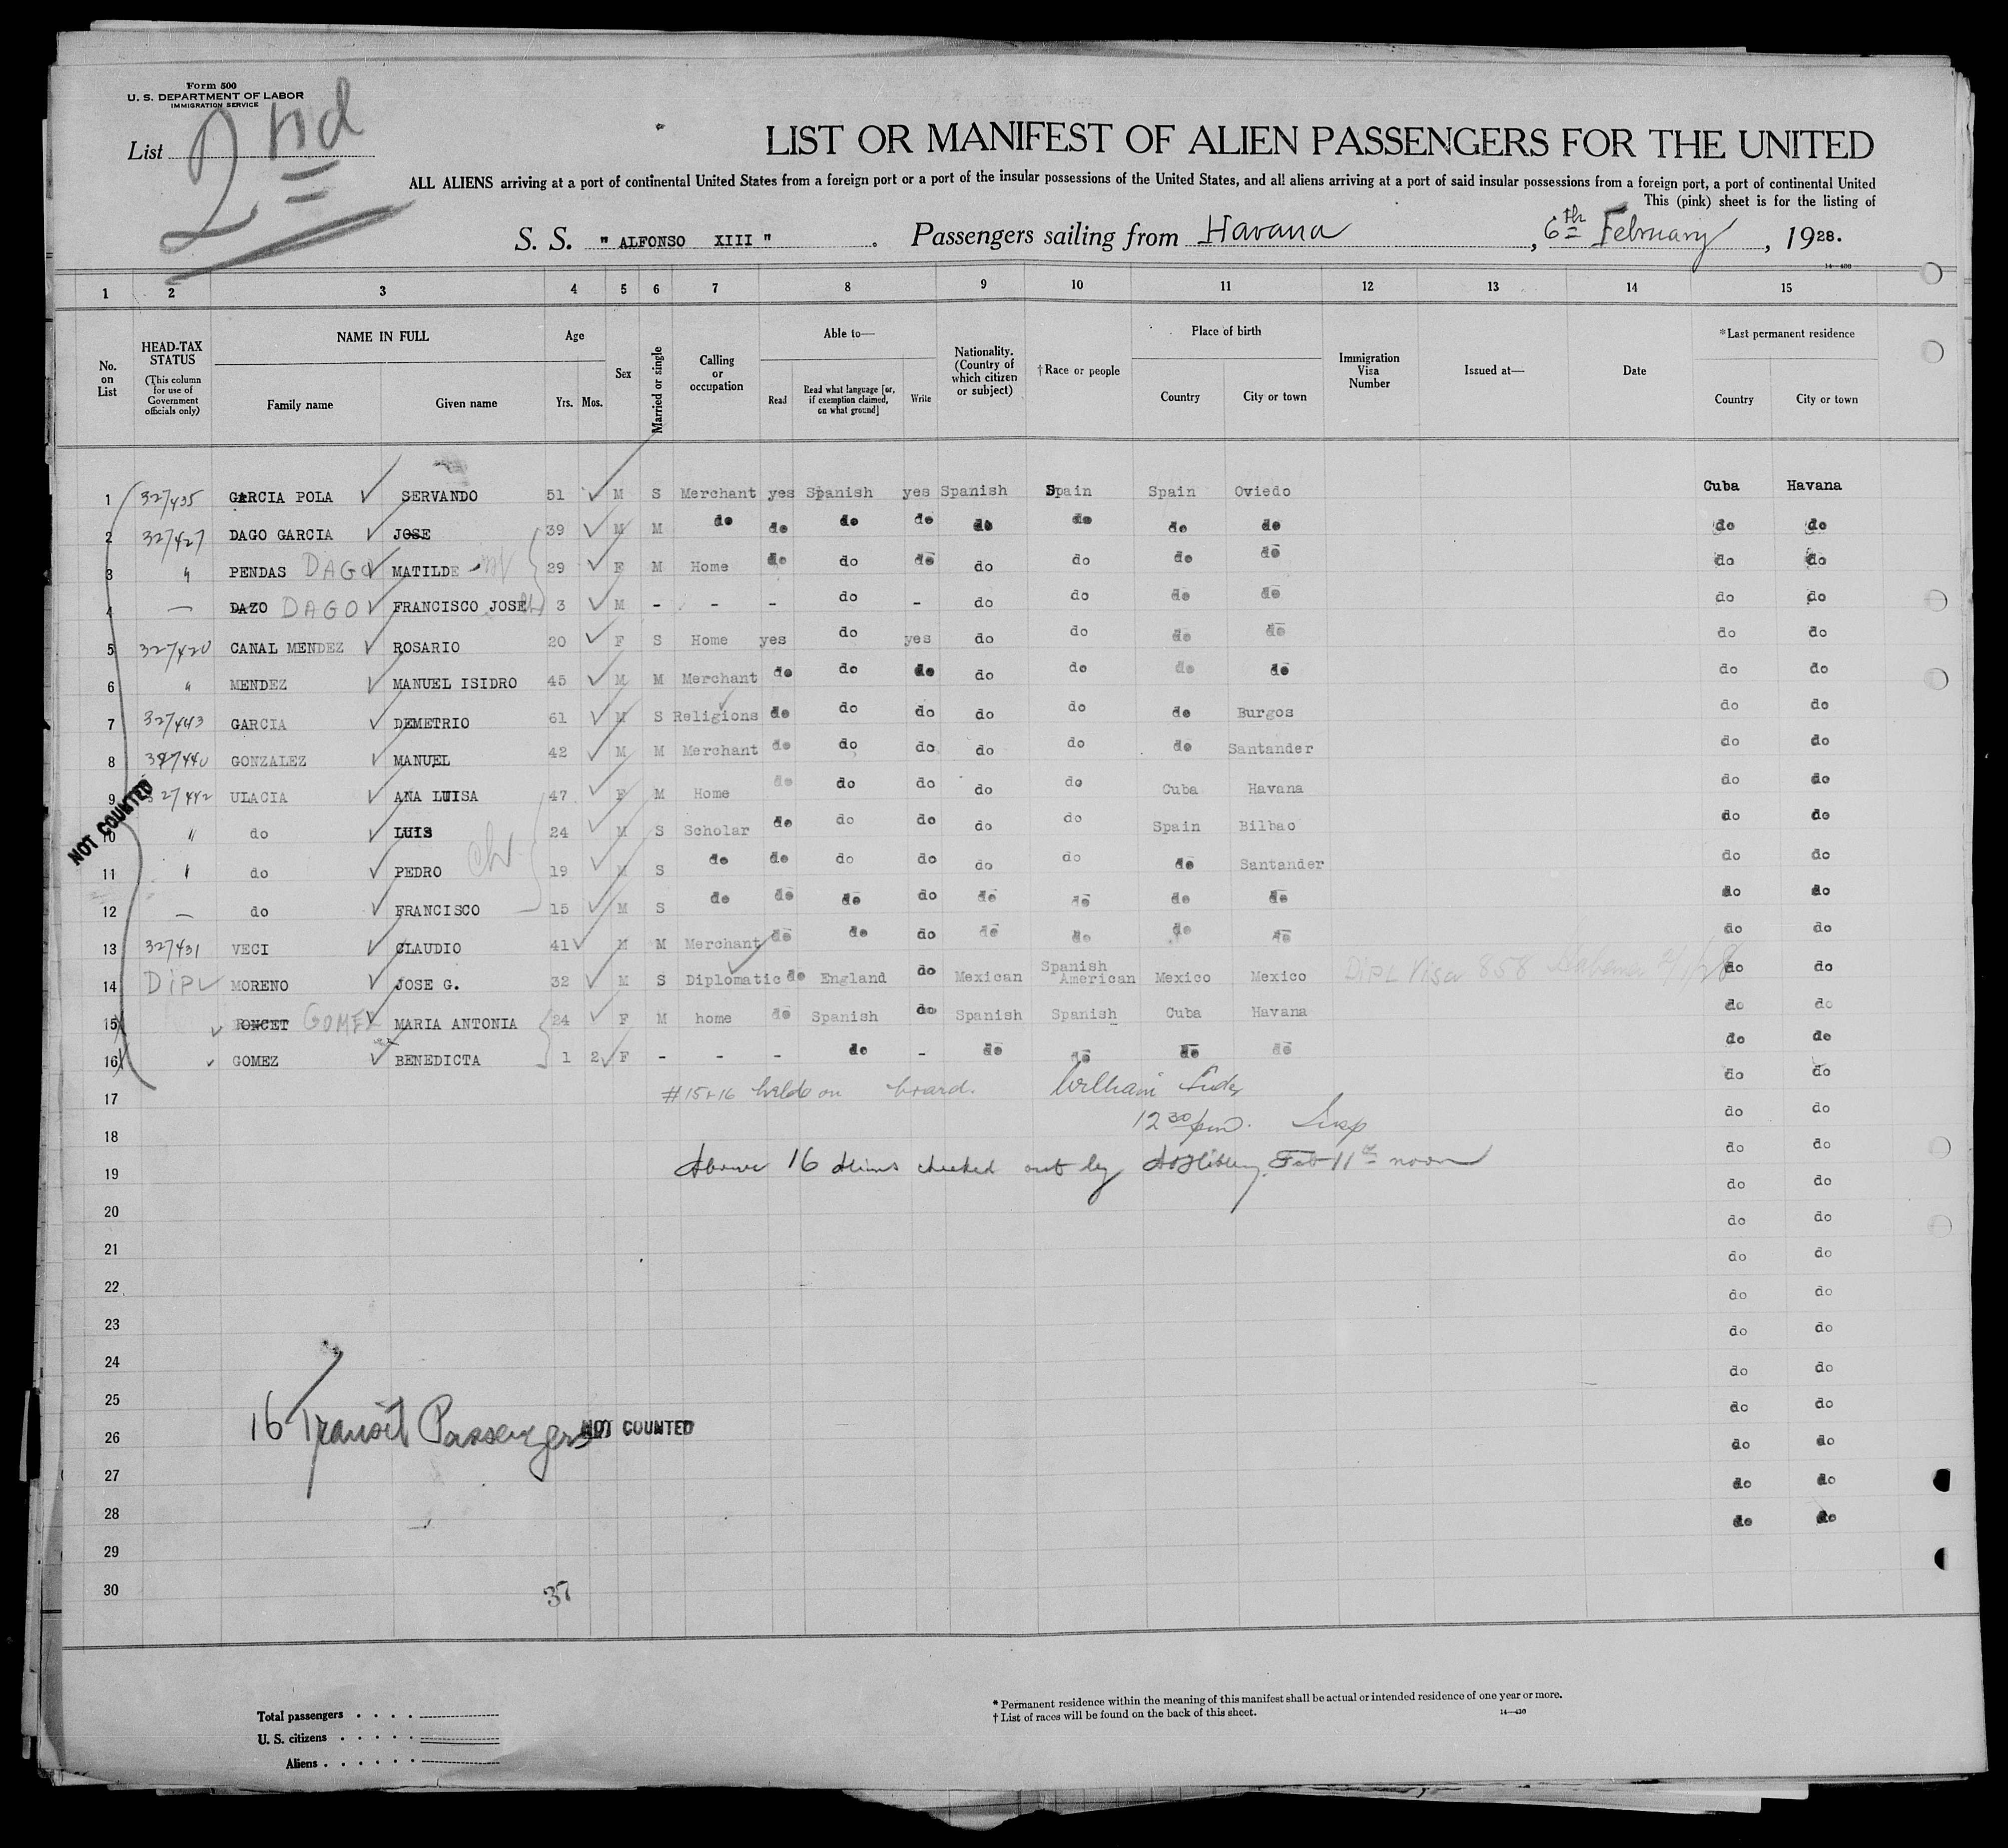 Form 500
U. S. DEPARTMENT OF LABOR
IMMIGRATION SERVICE
List 2nd
LIST OR MANIFEST OF ALIEN PASSENGERS FOR THE UNITED
ALL ALIENS arriving at a port of continental United States from a foreign port or a port of the insular possessions of the United States, and all aliens arriving at a port of said insular possessions from a foreign port, a port of continental United
This (pink) sheet is for the listing of
S. S. " ALFONSO XIII " . Passengers sailing from Havana , 6th February , 1928.
14—430
1 2 3 4 5 6 7 8 9 10 11 12 13 14 15
No. on List HEAD-TAX STATUS (This column for use of Government officials only) NAME IN FULL Family name Given name Age Yrs. Mos. Sex Married or single Calling or occupation Able to— Read Read what language [or, if exemption claimed, on what ground] Write Nationality. (Country of which citizen or subject) †Race or people Place of birth Country City or town Immigration Visa Number Issued at— Date *Last permanent residence Country City or town
1 327435 GARCIA POLA SERVANDO 51 M S Merchant yes Spanish yes Spanish Spain Spain Oviedo Cuba Havana
2 327427 DAGO GARCIA JOSE 39 M M do do do do do do do do do do
3 " PENDAS DAGO MATILDE 29 F M Home do do do do do do do do do
4 — DAZO DAGO FRANCISCO JOSE 3 M - - - do - do do do do do do
5 327420 CANAL MENDEZ ROSARIO 20 F S Home yes do yes do do do do do do
6 " MENDEZ MANUEL ISIDRO 45 M M Merchant do do do do do do do do do
7 327443 GARCIA DEMETRIO 61 M S Religions do do do do do do Burgos do do
8 327440 GONZALEZ MANUEL 42 M M Merchant do do do do do do Santander do do
9 327442 ULACIA ANA LUISA 47 F M Home do do do do do Cuba Havana do do
10 " do LUIS 24 M S Scholar do do do do do Spain Bilbao do do
11 " do PEDRO ch 19 M S do do do do do do do Santander do do
12 — do FRANCISCO 15 M S do do do do do do do do do do
13 327431 VECI CLAUDIO 41 M M Merchant do do do do do do do do do
14 DIPL MORENO JOSE G. 32 M S Diplomatic do England do Mexican Spanish American Mexico Mexico DIPL Visa 858 Habana do do
15 PONCET GOMEZ MARIA ANTONIA 24 F M home do Spanish do Spanish Spanish Cuba Havana do do
16 GOMEZ BENEDICTA 1 2 F - - - do - do do do do do do
NOT COUNTED
17 #15+16 held on board. William do do
18 12 30 pm. Insp do do
19 Above 16 Aliens checked out by Feb 11th noon do do
20 do do
21 do do
22 do do
23 do do
24 do do
25 do do
26 16 Transit Passengers NOT COUNTED do do
27 do do
28 do do
29
30 37
Total passengers . . . .
U. S. citizens . . . . .
Aliens . . . . . .
* Permanent residence within the meaning of this manifest shall be actual or intended residence of one year or more.
† List of races will be found on the back of this sheet.
14—430